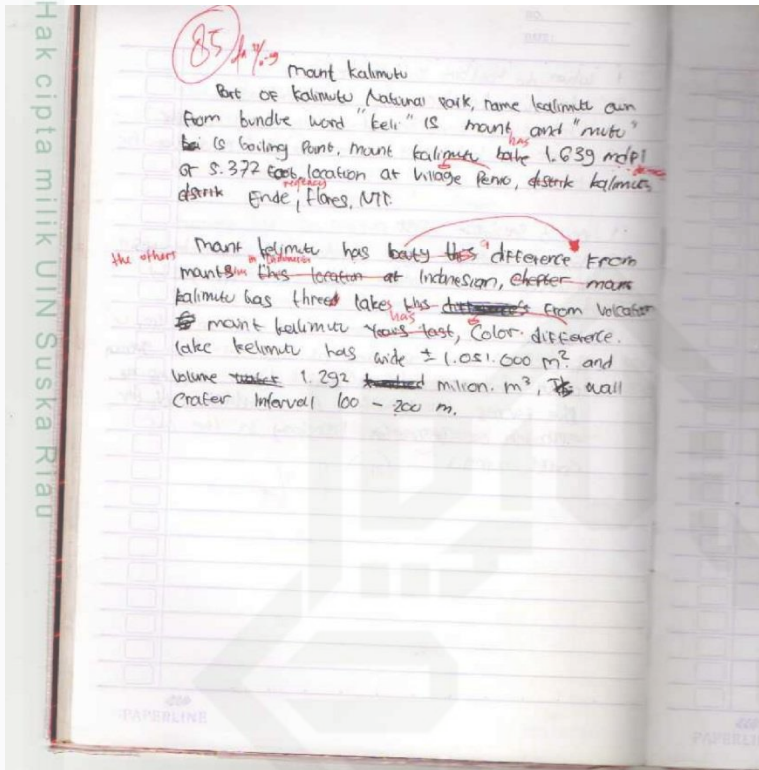 Hak cipta milik UIN Suska Riau
85
mount kalimutu
Part of kalimutu National Park, name kalimutu own
from bundle word "keli" is mount and "mutu"
is boiling Point, mount kalimutu has 1.639 mdpl
or 5.372 foot, location at village Pemo, distrik kalimutu
distrik Ende, regency Flores, NTT.
mount kelimutu has bauty this difference from
the others mount in Indonesia this location at Indonesian,
kalimutu has three lakes this from volcation
mount kelimutu has years last, color difference.
lake kelimutu has wide ± 1.051.000 m² and
volume 1.292 milion m³, wall
crater Intervall 100 - 200 m.
PAPERLINE
PAPERLINE